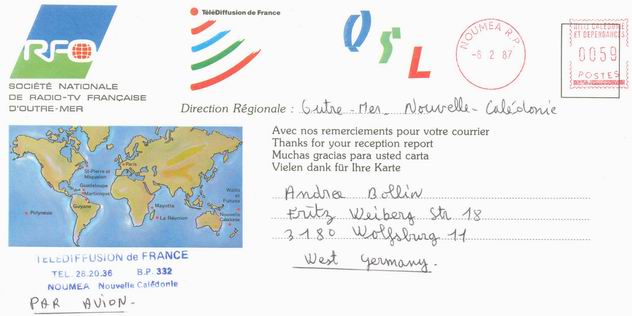 RFO
SOCIÉTÉ NATIONALE
DE RADIO-TV FRANÇAISE
D'OUTRE-MER
TéléDiffusion de France
QSL
NOUMEA R.P.
-6 2 87
NLLE CALEDONIE
ET DEPENDANCES
0059
POSTES
Direction Régionale : Outre-Mer-Nouvelle-Calédonie
Avec nos remerciements pour votre courrier
Thanks for your reception report
Muchas gracias para usted carta
Vielen dank für Ihre Karte
Andrea Bollin
Fritz Weiberg Str 18
3180 Wolfsburg 11
West Germany.
St-Pierre et
Miquelon
Paris
Guadeloupe
Martinique
Guyane
Polynésie
Mayotte
La Réunion
Wallis et
Futuna
Nouvelle
Calédonie
TELEDIFFUSION de FRANCE
TEL. 28.20.36 B.P. 332
NOUMEA Nouvelle Calédonie
PAR AVION-